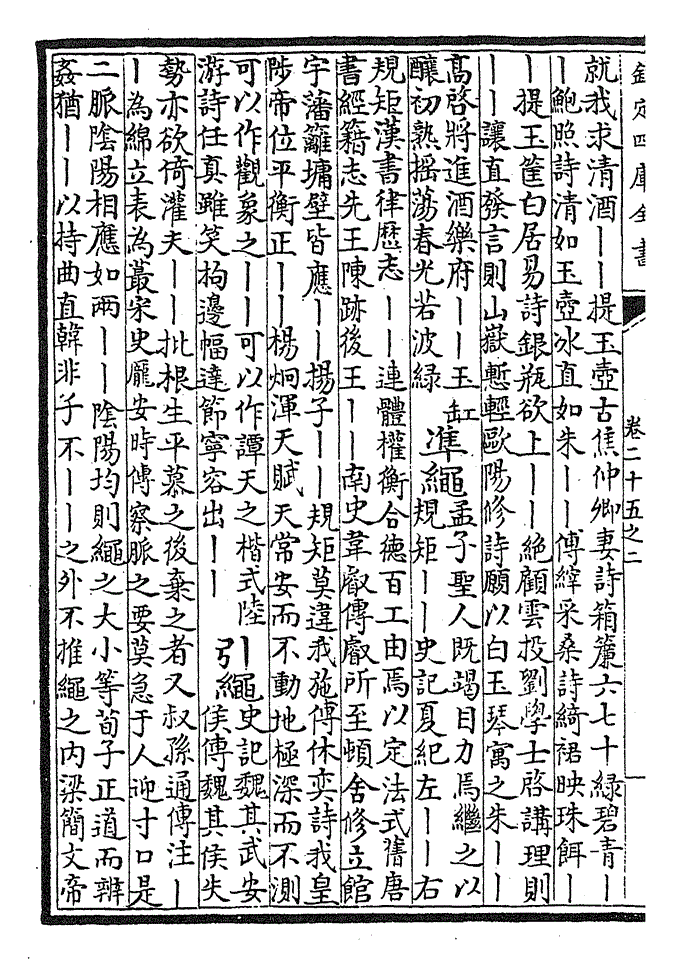 欽定四庫全書
卷二十五之二
就我求清酒丨丨提玉壺古焦仲卿妻詩箱簾六七十緑碧青丨
丨鮑照詩清如玉壺冰直如朱丨丨傅縡采桑詩綺裙映珠餌丨
丨提玉筐白居易詩銀瓶欲上丨丨絶顧雲投劉學士啓講理則
丨丨讓直發言則山嶽慙輕歐陽修詩願以白玉琴寓之朱丨丨
高啓將進酒樂府丨丨玉缸
釀初熟摇蕩春光若波緑
凖繩
孟子聖人既竭目力焉繼之以
規矩丨丨史記夏紀左丨丨右
規矩漢書律歴志丨丨連體權衡合德百工由焉以定法式舊唐
書經籍志先王陳跡後王丨丨南史韋叡傳叡所至頓舍修立館
宇藩籬墉壁皆應丨丨揚子丨丨規矩莫違我施傅休奕詩我皇
陟帝位平衡正丨丨楊炯渾天賦天常安而不動地極深而不測
可以作觀象之丨丨可以作譚天之楷式陸
游詩任真雖笑拘邊幅達節寧容出丨丨
引繩
丨繩史記魏其武安
侯傳魏其侯失
勢亦欲倚灌夫丨丨批根生平慕之後棄之者又叔孫通傳注丨
丨為綿立表為蕞宋史龐安時傳察脈之要莫急于人迎寸口是
二脈陰陽相應如兩丨丨陰陽均則繩之大小等荀子正道而辨
姦猶丨丨以持曲直韓非子不丨丨之外不推繩之内梁簡文帝